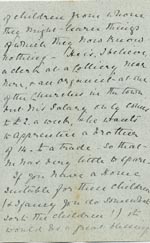 of children from whom
they might learn things
of which they now know
nothing. He is, I believe
a clerk at a Colliery near
here, an organist at one
of the Churches in the town
but his Salary only comes
to £2 a week, & he wants
to apprentice a brother
of 14. to a trade. so that
he has very little to spare.
If you have a home
suitable for these children
(& I fancy you do somewhat
sort the children!) it
would be a great blessing